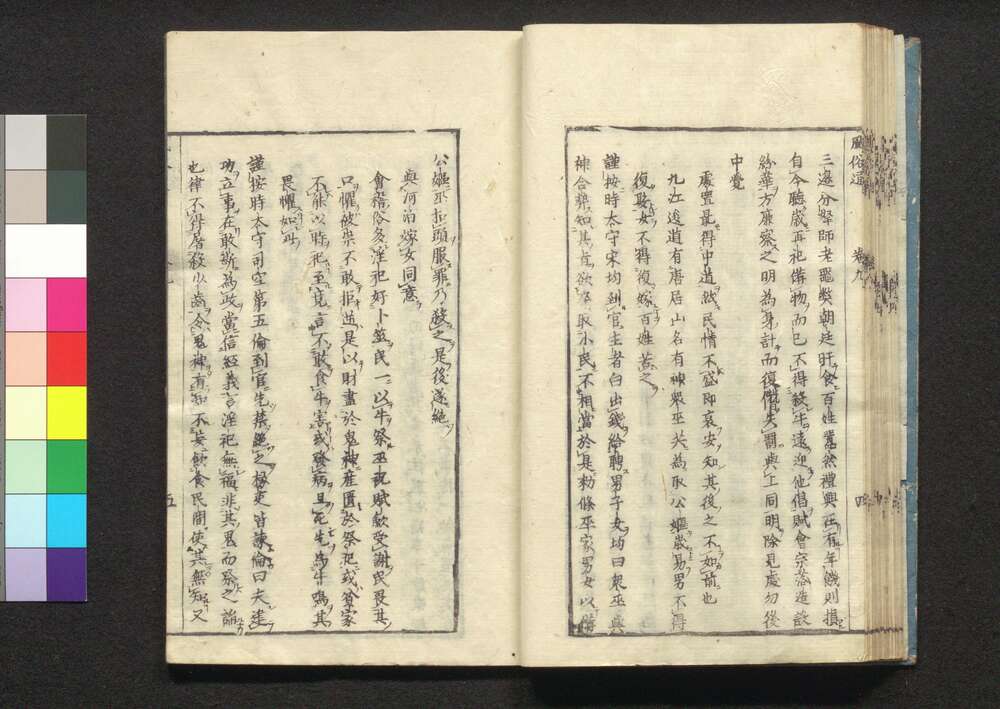 風俗通　卷九　四
三邊分擧師老器弊朝廷旰食百姓囂然禮興在有年饑則損
自今聽歲再祀備物而已不得殺牛遠迎他倡賦會宗落造設
紛華方廉察之明為身計而復僭失罰與上同明除見處勿後
中覺
處豐最得中道然民情不盛即衰安知其後之不如前也
九江逡遒有唐居山名有神衆巫共為取公嫗歲易男不得
復娶女不得復嫁百姓苦之
謹按時太守宋均到官主者白出錢給聘男子女均曰衆巫與
神合契知其旨欲卒取小民不相當於是勑條巫家男女以備
公嫗巫扣頭服罪乃殺之是後遂絶
與河泊嫁女同意
會稽俗多淫祀好卜筮民一以牛祭巫祝賦歛受謝民畏其
口懼被祟不敢拒逆是以財盡於鬼神産匱於祭祀或貧家
不能以時祀至竟言不敢食牛害或發病且死先為牛鳴其
畏懼如此
謹按時太守司空第五倫到官先禁絶之掾吏皆諫倫曰夫建
功立事在敢斷為政當信經義言淫祀無福非其鬼而祭之諂
也律不得屠殺少齒令鬼神有知不妄飲食民間使其無知又
五